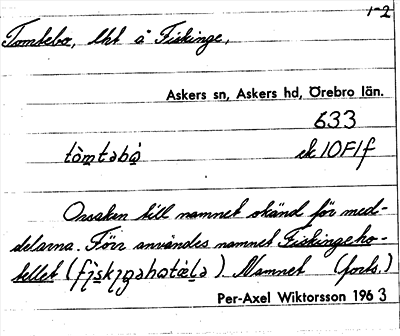 1-2
Tomtebo, lht å Fiskinge,
Askers sn, Askers hd, Örebro län.
633
tòmtəbó̤ ek 10F1f
Orsaken till namnet okänd för med-
delarna. Förr användes namnet Fiskingeho-
tellet (fìskɩŋəhɷtǽlə). Namnet (forts.)
Per-Axel Wiktorsson 1963